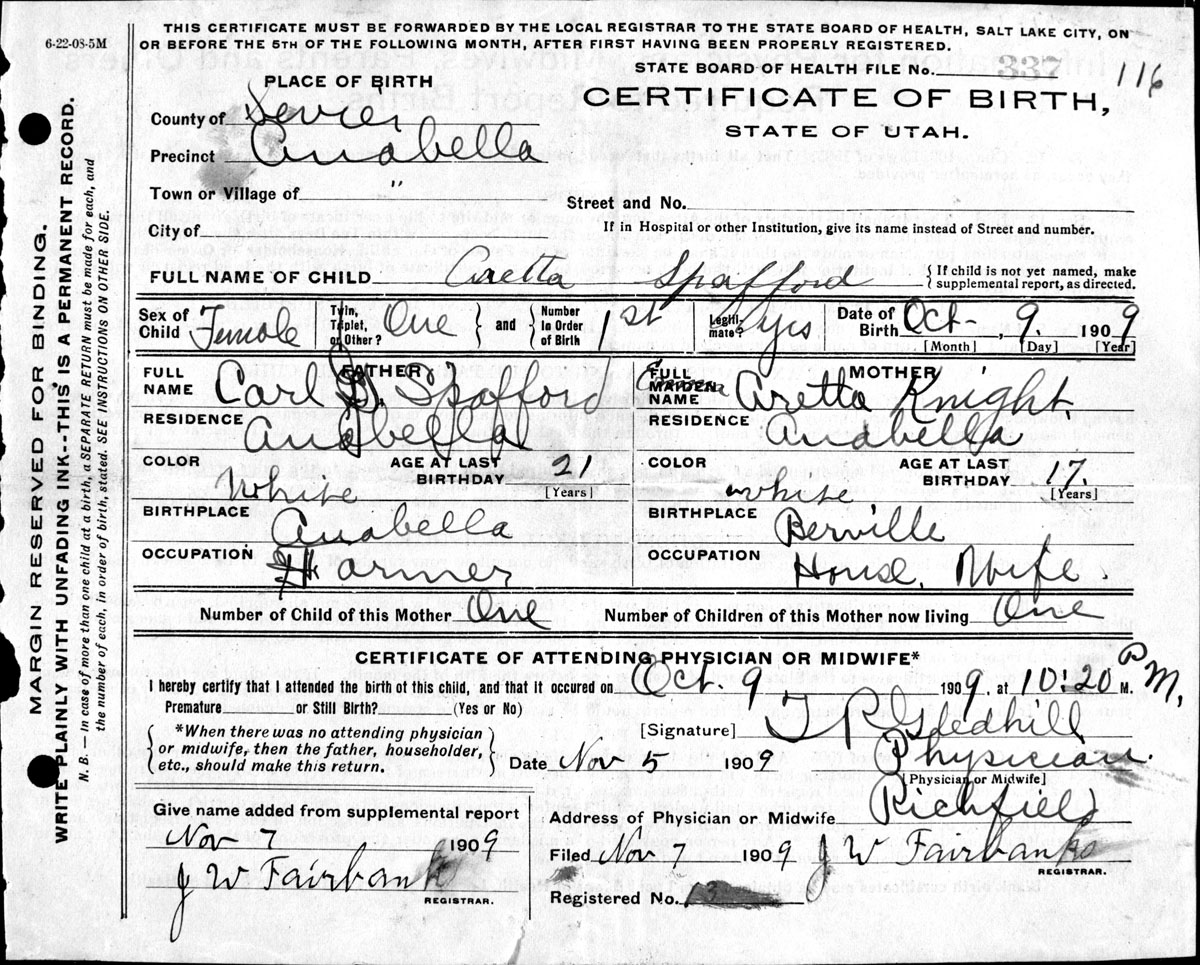 6-22-08-5M
THIS CERTIFICATE MUST BE FORWARDED BY THE LOCAL REGISTRAR TO THE STATE BOARD OF HEALTH, SALT LAKE CITY, ON
OR BEFORE THE 5TH OF THE FOLLOWING MONTH, AFTER FIRST HAVING BEEN PROPERLY REGISTERED.
STATE BOARD OF HEALTH FILE No. 337 116
CERTIFICATE OF BIRTH,
STATE OF UTAH.
PLACE OF BIRTH
County of Sevier
Precinct Anabella
Town or Village of "
Street and No.
City of
If in Hospital or other Institution, give its name instead of Street and number.
FULL NAME OF CHILD Aretta Spafford { If child is not yet named, make
supplemental report, as directed.
Sex of Child Female Twin, Triplet, or Other? One } and { Number In Order of Birth 1st Legitimate? yes Date of Birth Oct. 9, 1909
[Month] [Day] [Year]
FATHER
FULL NAME Carl D. Spafford
RESIDENCE Anabella
COLOR White AGE AT LAST BIRTHDAY 21 [Years]
BIRTHPLACE Anabella
OCCUPATION Farmer
MOTHER
FULL MAIDEN NAME Aretta Knight.
RESIDENCE Anabella
COLOR white AGE AT LAST BIRTHDAY 17. [Years]
BIRTHPLACE Berville
OCCUPATION House. Wife.
Number of Child of this Mother One Number of Children of this Mother now living One
CERTIFICATE OF ATTENDING PHYSICIAN OR MIDWIFE*
I hereby certify that I attended the birth of this child, and that it occurred on Oct. 9 1909, at 10:20 P M.
Premature or Still Birth? (Yes or No)
*When there was no attending physician
or midwife, then the father, householder,
etc., should make this return.
[Signature] T R Gledhill
Date Nov 5 1909 Physician.
[Physician or Midwife]
Address of Physician or Midwife Richfield
Give name added from supplemental report
Nov 7 1909
J W Fairbanks
REGISTRAR.
Filed Nov 7 1909 J W Fairbanks
REGISTRAR.
Registered No. 3
MARGIN RESERVED FOR BINDING.
WRITE PLAINLY WITH UNFADING INK--THIS IS A PERMANENT RECORD.
N. B. — In case of more than one child at a birth, a SEPARATE RETURN must be made for each, and
the number of each, in order of birth, stated. SEE INSTRUCTIONS ON OTHER SIDE.